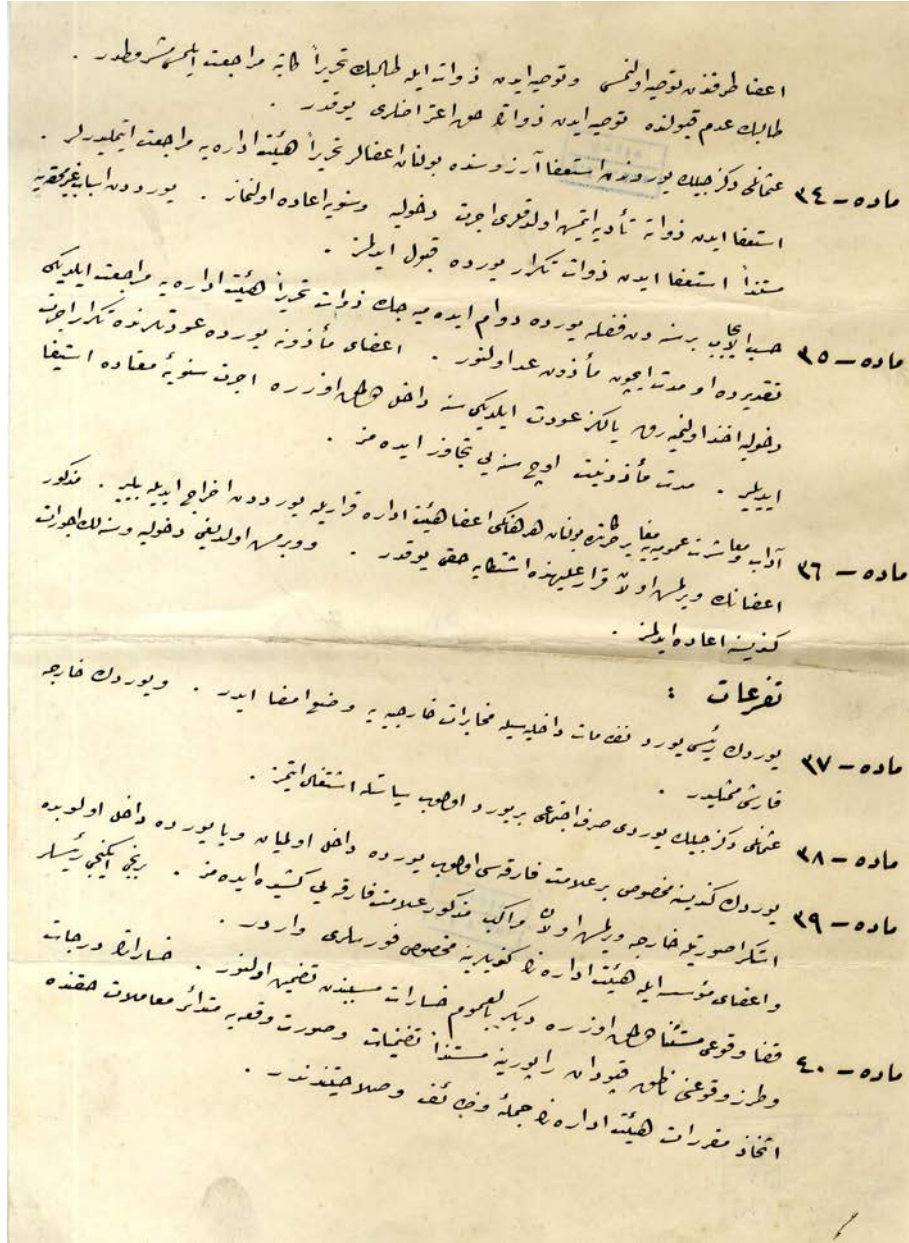 اعضا طرفندن توصیه اولنمسی و توصیه ایدن ذوات ایله طالبك تحریراً كاتبه مراجعت ایلمسی مشروطدر .
طالبك عدم قبولنده توصیه ایدن ذواتك حق اعتراضلری یوقدر .
ماده – ٣٤ عثمانلی دكزجیلك یوردندن استعفا آرزوسنده بولنان اعضالر تحریراً هیئت اداره یه مراجعت ایتملیدرلر .
استعفا ایدن ذواته تأدیه ایتمش اولدقلری اجرت دخولیه وسنویه اعاده اولنماز . یورددن اسباب غیر محقه یه
مستنداً استعفا ایدن ذوات تكرار یورده قبول ایدلمز .
ماده – ٣٥ حسب الایجاب بر سنه دن فضله یورده دوام ایده میه جك ذوات تحریراً هیئت اداره یه مراجعت ایلدیكی
تقدیرده او مدت ایچون مأذون عد اولنور . اعضای مأذونه یورده عودتلرنده تكرار اجرت
دخولیه اخذ اولنمیه رق یالكز عودت ایلدیكی سنه داخل اولمق اوزره اجرت سنویۀ معتاده استیفا
ایدیلیر . مدت مأذونیت اوچ سنه یی تجاوز ایده مز .
ماده – ٣٦ آداب ومعاشرت عمومیه یه مغایر حركتده بولنان هر هانكی اعضا هیئت اداره قراریله یورددن اخراج ایدیله بیلیر . مذكور
اعضانك ویرلمش اولان قرار علیهنده اشتكایه حقی یوقدر . وویرمش اولدیغی دخولیه وسنه لك اجورات
كندیسنه اعاده ایدلمز .
تفرعات :
ماده – ٣٧ یوردك رئیسی یورد نظامات داخلیه سیله مخابرات خارجیه یه وضع امضا ایدر . ویوردك خارجه
قارشی ممثلیدر .
ماده – ٣٨ عثمانلی دكزجیلك یوردی صرف اجتماعی بر یورد اولوب سیاستله اشتغال ایتمز .
ماده – ٣٩ یوردك كندیسنه مخصوص بر علامت فارقه سی اولوب یورده داخل اولمیان ویا یورده داخل اولوبده
استكرا صورتیله خارجه ویرلمش اولان مراكب مذكور علامت فارقه یی كشیده ایده مز . برنجی ایكنجی رئیسلر
واعضای مؤسسه ایله هیئت اداره نك كندیلرینه مخصوص فورسلری واردر .
ماده – ٤٠ قضا وقوعی مستثنا اولمق اوزره دیكر بالعموم خسارات مسببندن تضمین اولنور . خساراتك درجات
وطرز وقوعنی ناطق قپودان راپورینه مستنداً تضمینات وصورت وقعه یه متدائر معاملات حقنده
اتخاذ مقررات هیئت اداره نك جملۀ وظائف وصلاحیتندندر .